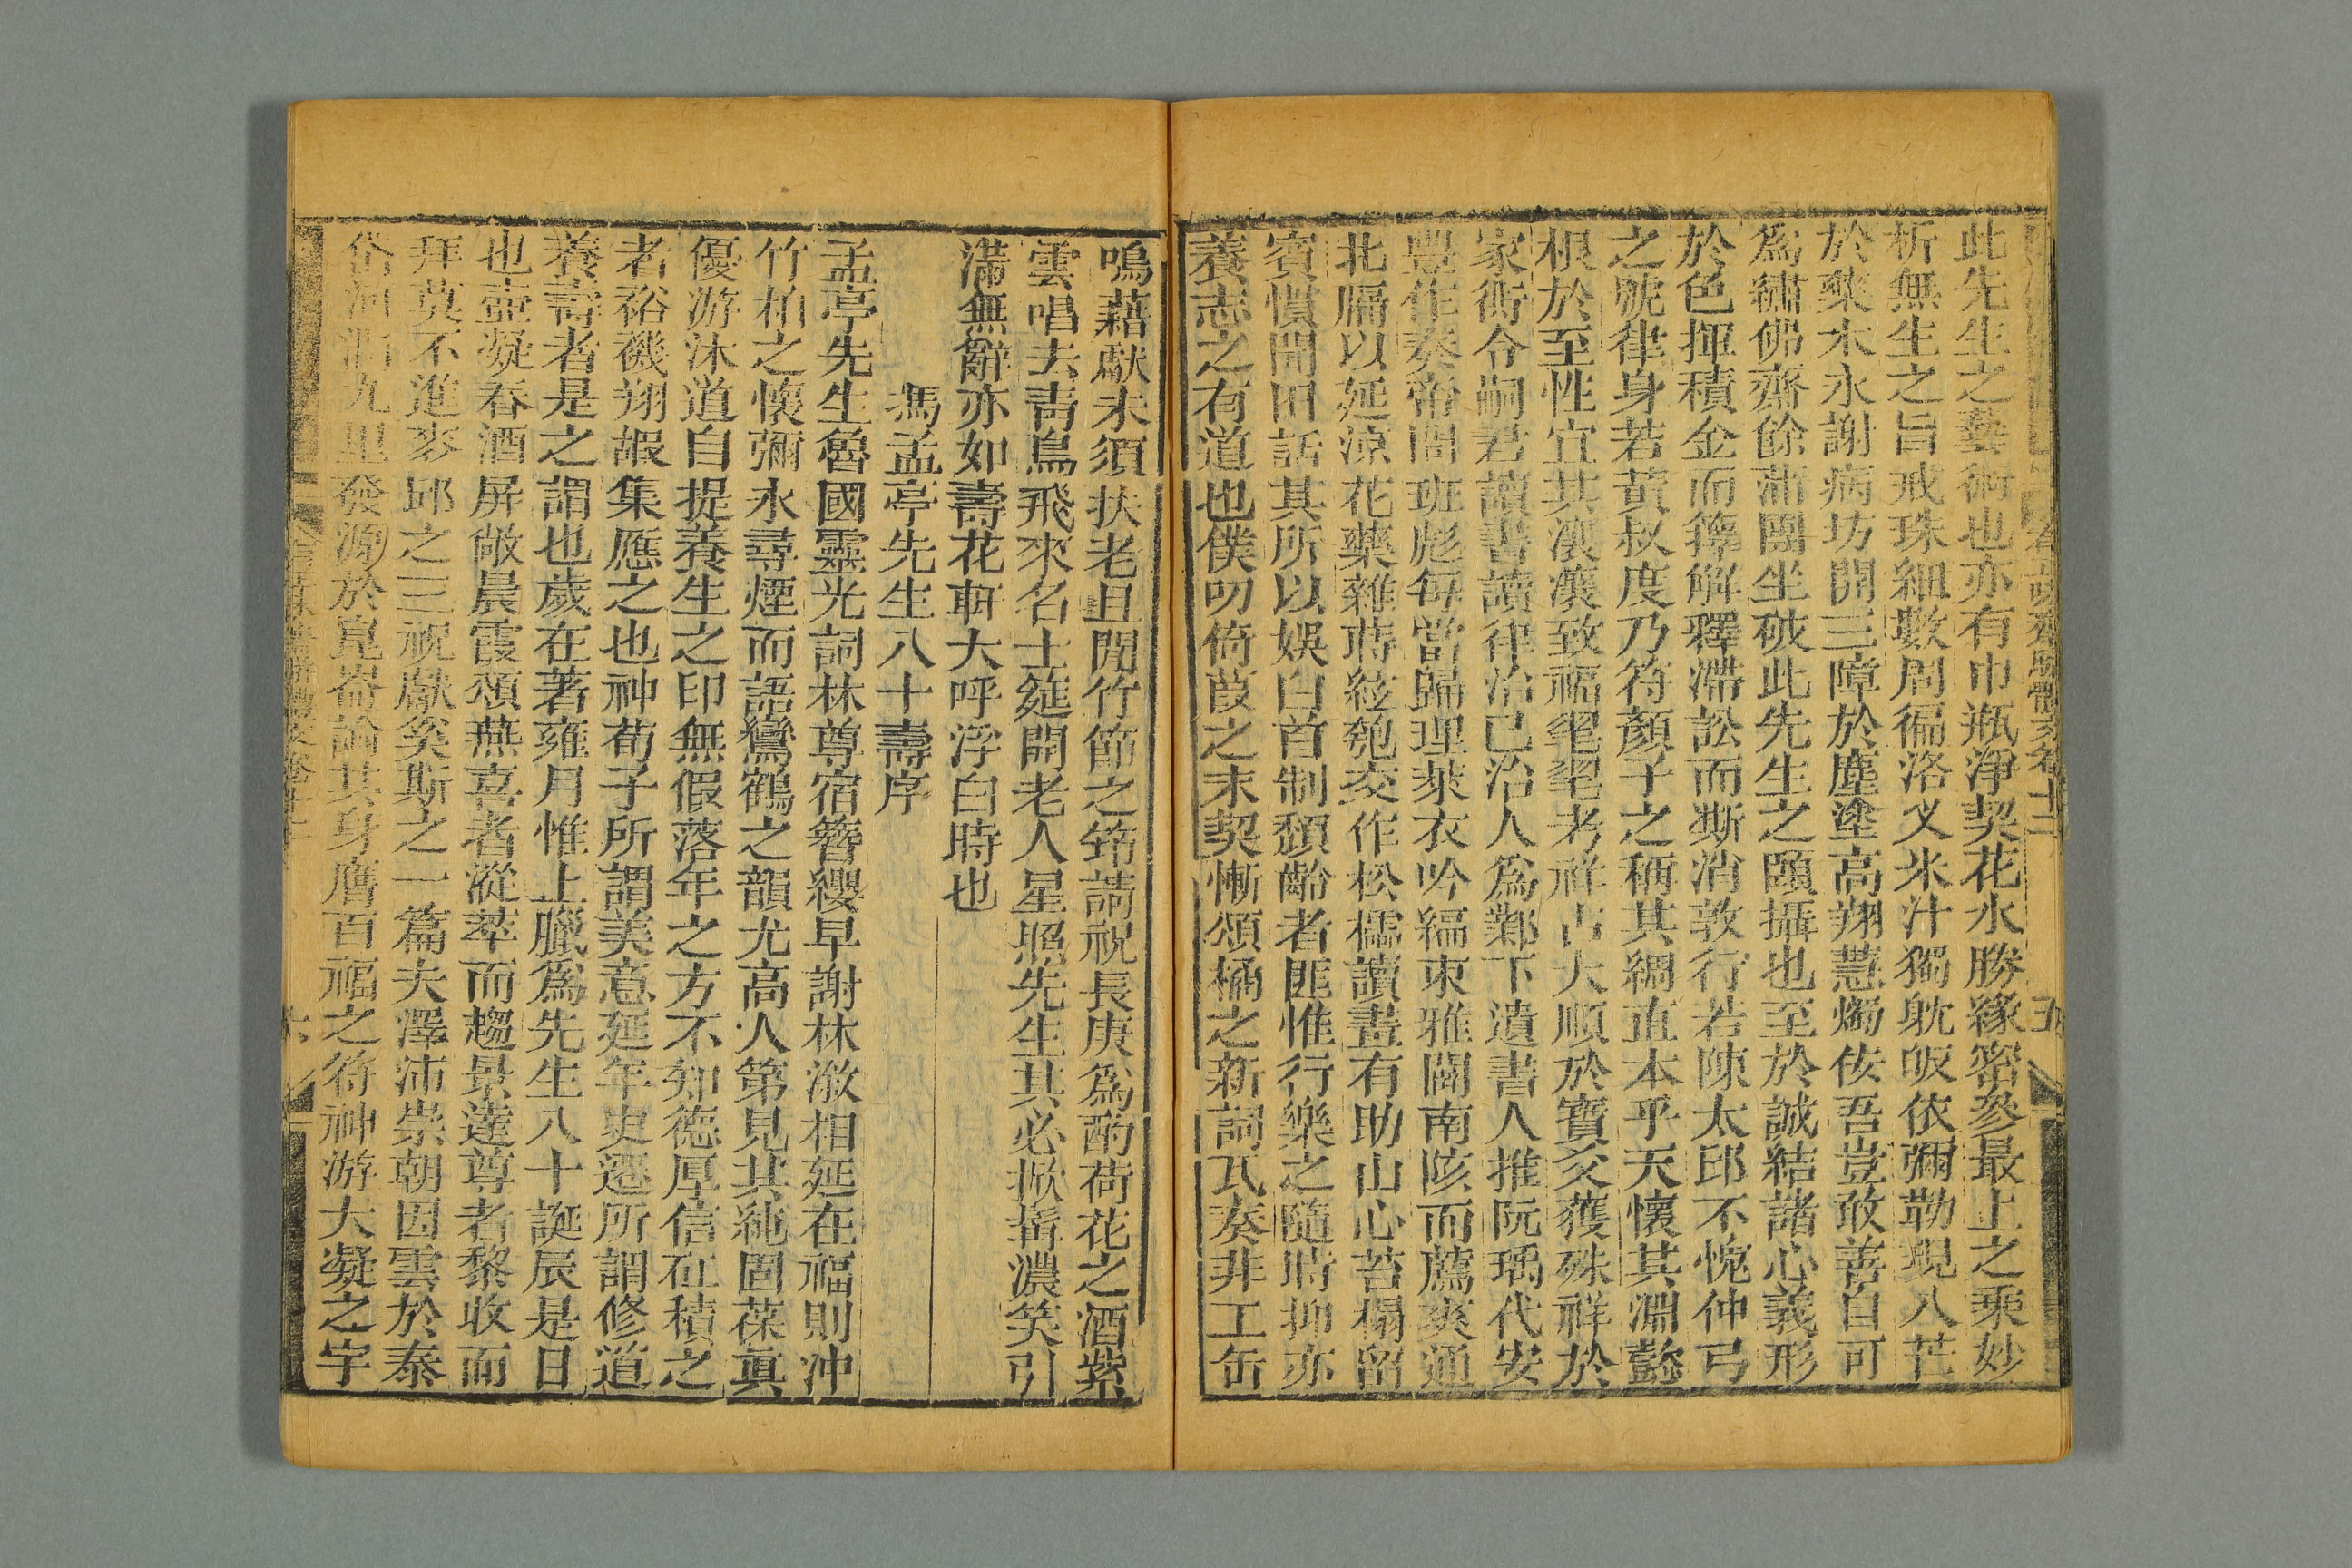 此先生之藝術也亦有巾瓶淨契花水勝緣密參最上之乘妙
析無生之旨戒珠細數周徧洛叉米汁獨躭皈依彌勒現八芒
於藥木永謝病坊開三障於塵塗高翔慧燭侫吾豈敢善自可
爲繡佛齋餘蒲團坐破此先生之頤攝也至於誠結諸心義形
於色揮積金而籜解釋滯訟而澌消敦行若陳太邱不愧仲弓
之號律身若黃叔度乃符顏子之稱其綱直本乎天懷其淵懿
根於至性宜其瀼瀼致福毣毣考祥占大順於寶爻獲殊祥於
家衖令嗣君讀書讀律治已治人爲鄴下遺書人推阮瑀代安
豐作奏帝問班彪每當歸理萊衣吟編束雅闢南陔而薦爽通
北牖以延涼花藥雜蒔絃匏交作松櫺讀畫有助山心苔榻留
賓慣聞田話其所以娛白首制頹齡者匪惟行樂之隨時抑亦
養志之有道也僕叨倚葭之末契慚頌橘之新詞瓦奏非工缶
鳴藉獻未須扶老且閒竹節之筇請祝長庚爲酌荷花之酒紫
雲唱去靑鳥飛來名士筵開老人星照先生其必掀髯濃笑引
滿無辭亦如壽花軒大呼浮白時也
馮孟亭先生八十壽序
孟亭先生魯國靈光詞林尊宿簪纓早謝林澈相延在福則沖
竹柏之懷彌永尋煙而語鸞鶴之韻尤高人第見其純固葆眞
優游沐道自提養生之印無假落年之方不知德厚信矼積之
者裕禨翔嘏集應之也神荀子所謂美意延年史遷所謂修道
養壽者是之謂也歲在著雍月惟上臘爲先生八十誕辰是日
也壺凝春酒屏敞晨霞頌燕喜者漎萃而趨景達尊者黎收而
拜莫不進麥邱之三祝獻奚斯之一篇夫澤沛崇朝因雲於泰
俗河潤九里發源於崑崙諭其身膺百福之符神游大凝之宇